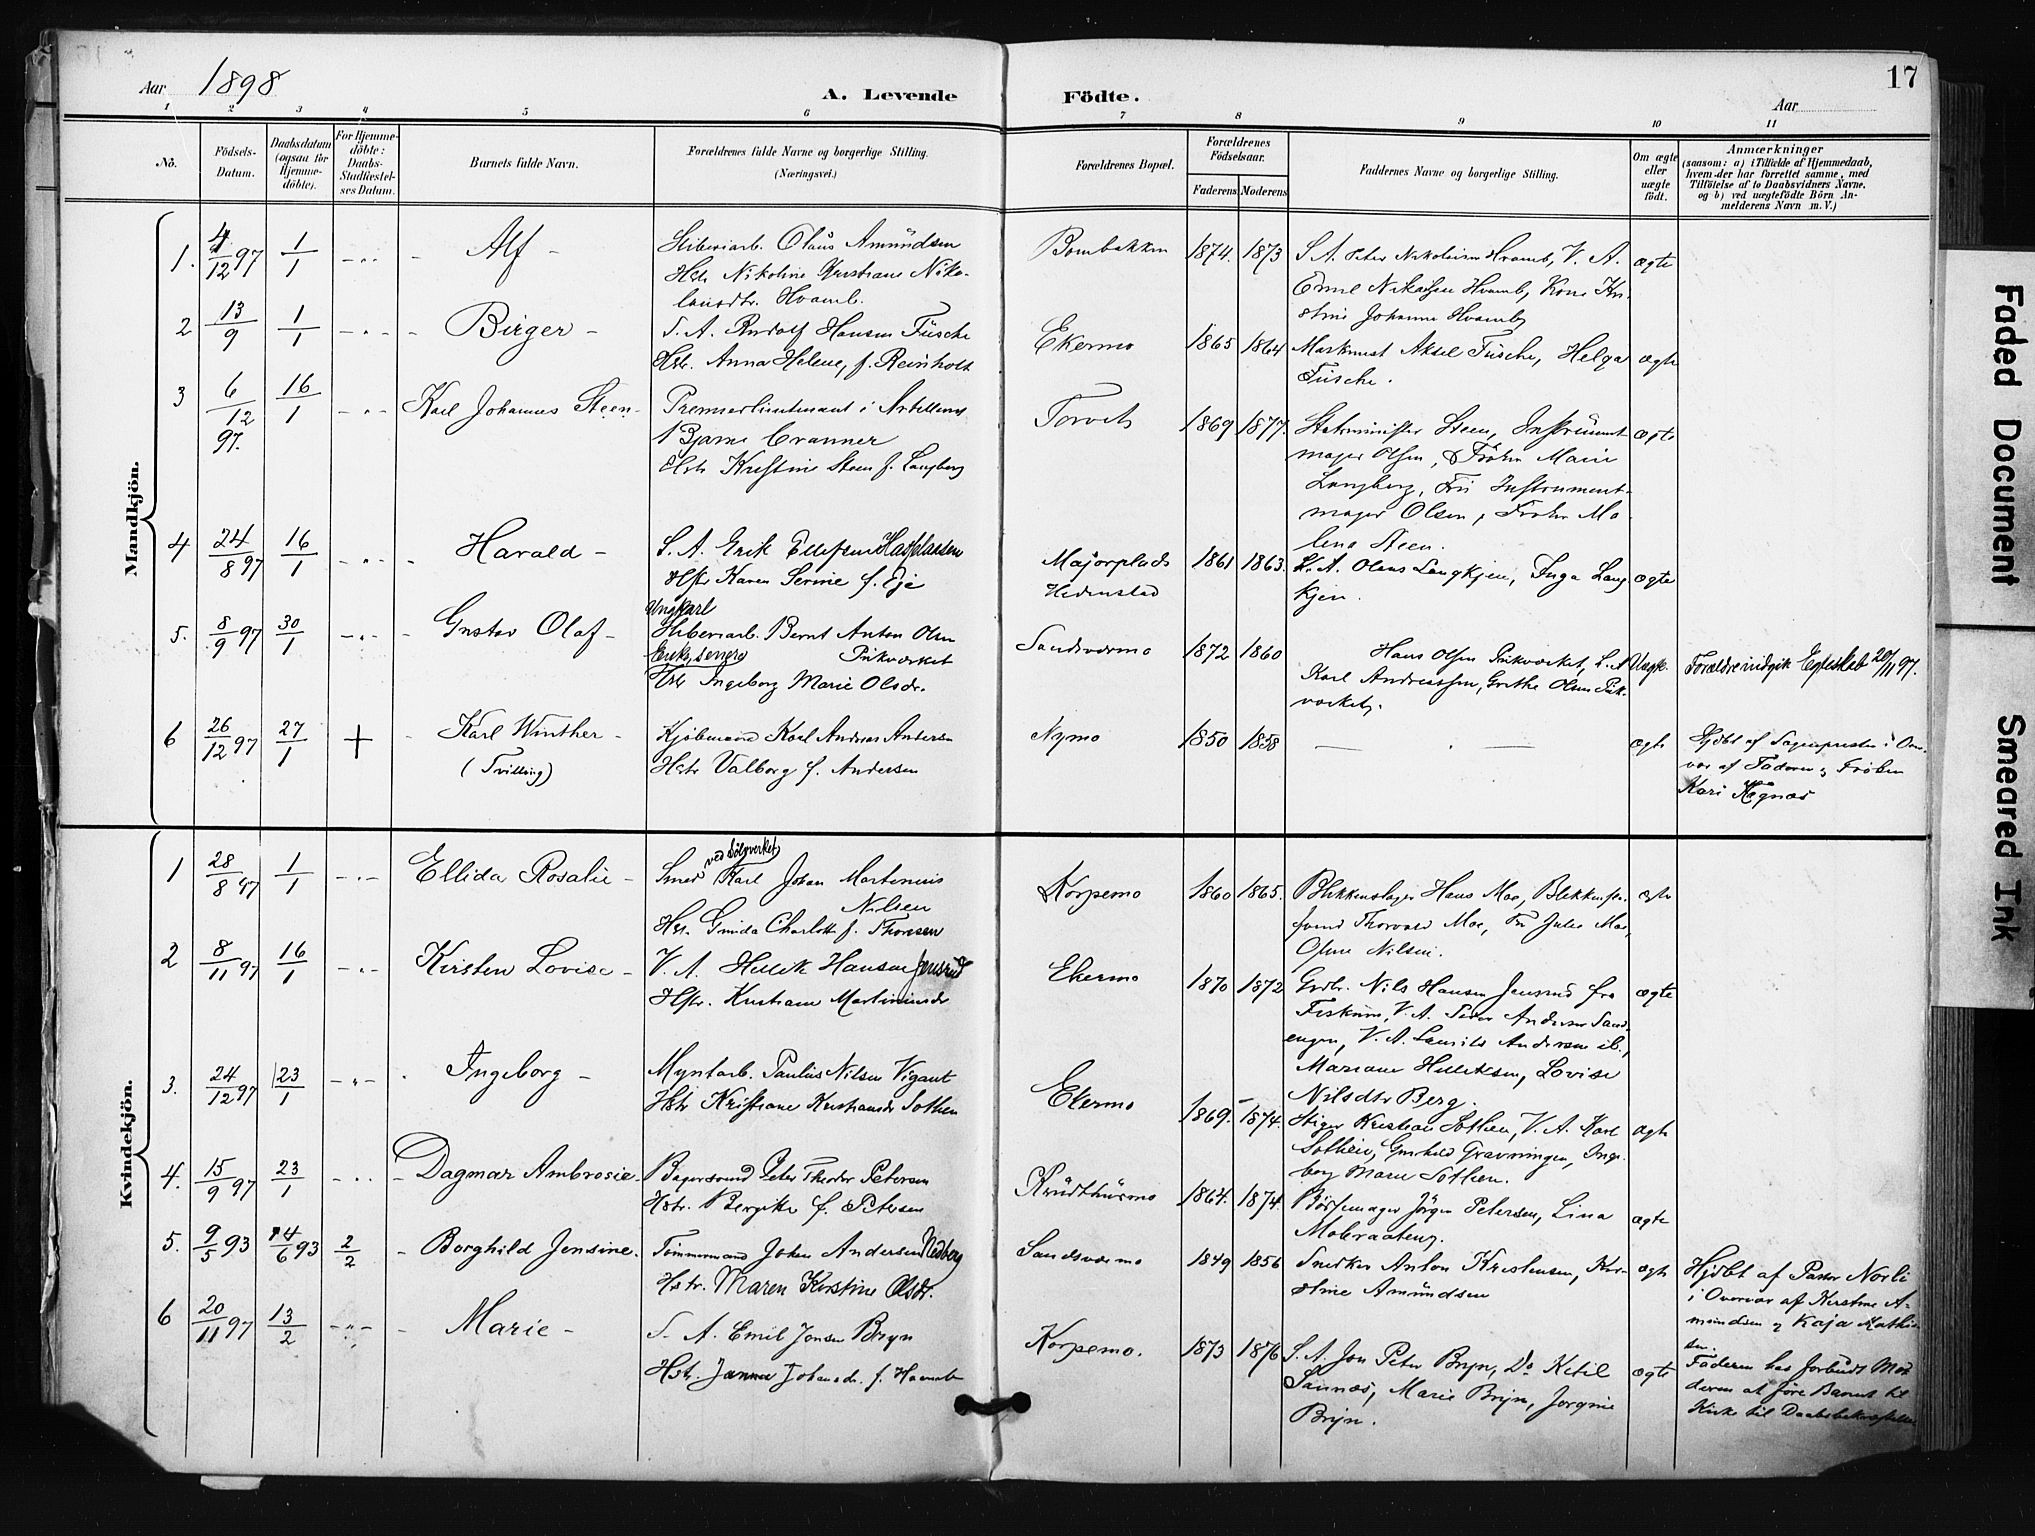 Aar 1898
A. Levende Födte.
17
Aar
1 2 3 4 5 6 7 8 9 10 11
No.
Födsels-Datum.
Daabsdatum (ogsaa for Hjemmedöbte).
For Hjemmedöbte: Daabs-Stadfæstelses Datum.
Barnets fulde Navn.
Forældrenes fulde Navne og borgerlige Stilling. (Næringsvei.)
Forældrenes Bopæl.
Forældrenes Födselsaar.
Faderens Moderens
Faddernes Navne og borgerlige Stilling.
Om ægte eller uægte födt.
Anmærkninger
(saasom: a) i Tilfælde af Hjemmedaab,
hvem der har forrettet samme, med
Tilföielse af to Daabsvidners Navne.
og b) ved uægtefödte Börn An-
melderens Navn m. V.)
Mandkjön.
1. 4/12 97 1/1 Alf -
Olaus Amundsen
Hstr. Nikoline Kristiane Niko-
laisdtr. Hvamb.
1874. 1873
S. A. Peter Nikolaisen Hvamb, V. A.
Hvamb, Kone Kri-
stine Johanne Hvamb
ægte
2 13/9 1/1 Birger -
S. A. Rudolf Hansen Füsche
Hstr. Anna Helene, f. Reinholt
Ekermo 1865 1864
Aksel Füsche, Helga
Füsche.
ægte
3 6/12 97. 16/1 Karl Johannes Steen -
Premierlieutenant i Artilleriet
Bjarne Cranner
Hstr. Kristine Steen f. Langberg
Torvet 1869 1877.
Statsminister Steen, Instrument
mager Olsen, Frøken Marie
Langberg, Fru Instrument-
mager Olsen, Frøken Ma-
lena Steen.
ægte
4 24/8 97 16/1 Harald -
S. A. Erik Ellefsen
Hstr Karen Serine f. Eje
Majorplads
Hedenstad
1861 1863.
S. A. Olaus Langkjen, Inga Lang
kjen.
ægte
5. 8/9 97 30/1 Gustav Olaf -
Ungkarl
Bernt Anton Olsen
Pikværket
Ingeborg Marie Olsdr.
Sandsværmo 1872 1860
Hans Olsen Pikværket, S. A
Karl Andreassen, Grethe Olsen Pik-
værket.
Uægte.
Forældre indgik Egteskab 20/11 97.
6 26/12 97 27/1 + Karl Winther -
(Tvilling)
Kjøbmand Karl Andreas Andersen
Hstr. Valborg f. Andersen
Nymo 1850 1858
ægte
Hjdbt af Sognepresten i Over-
vær af Faderen og Frøken
Kari Nægnæs
Kvindekjön.
1 28/8 97 1/1 Ellida Rosalie -
ved Sölvverket
Smed Karl Johan Martinius
Nilsen
Hstr. Gunida Charlotte f. Thoresen
Korpemo 1860 1865.
Blikkenslager Hans Moe,
Thorvald Moe, Fru Julie Moe,
Nilsen.
ægte
2 8/11 97 16/1 Kirsten Lovise -
V. A. Hellik Hansen Jensrud
Hstr. Kristiane Martiniusdr
Ekermo 1870 1872
Grdbr. Nils Hansen Jensrud fra
Fiskum, V. A. Peder Andersen Sand-
engen, V. A. Laurits Andersen ib.,
Mariane Helliksen, Lovise
Nilsdtr Berg.
ægte
3. 24/12 97 23/1 Ingeborg -
Myntarb. Paulus Nilsen Vigant
Hstr Kristiane Kristiansdr Sothen
Ekermo 1869. 1874.
Stiger Kristian Sothen, V. A. Karl
Sothen, Gunhild Gravningen, Inge-
borg Marie Sothen.
ægte
4. 15/9 97 23/1 Dagmar Ambrosie -
Bagersvend Peter Theodor Petersen
Hstr. Bergitte f. Petersen
1864. 1874.
Børstemager Jörgen Petersen, Lina
Mobraaten.
ægte
5. 9/5 93 4/6 93 2/2 Borghild Jensine.
Tømmermand Johan Andersen Nedberg
Hstr. Maren Kirstine Olsdr.
Sandsværmo 1849 1856
Snedker Anton Kristensen, Kir-
stine Amundsen
ægte
Hjdbt af Pastor Norli
i Overvær af Kirstine A-
mundsen og Kaja Mathi
sen.
6 20/11 97 13/2 Marie -
S. A. Emil Jonsen Bryn
Hstr. Janna Johansdr. f.
Korpemo. 1873 1876
S. A. Jon Peter Bryn, Do Ketil
Sannæs, Marie Bryn, Jorgine
Bryn.
ægte
Faderen har forbudt Mo-
deren at føre Barnet til
Kirke til
Faded Document
Smeared Ink